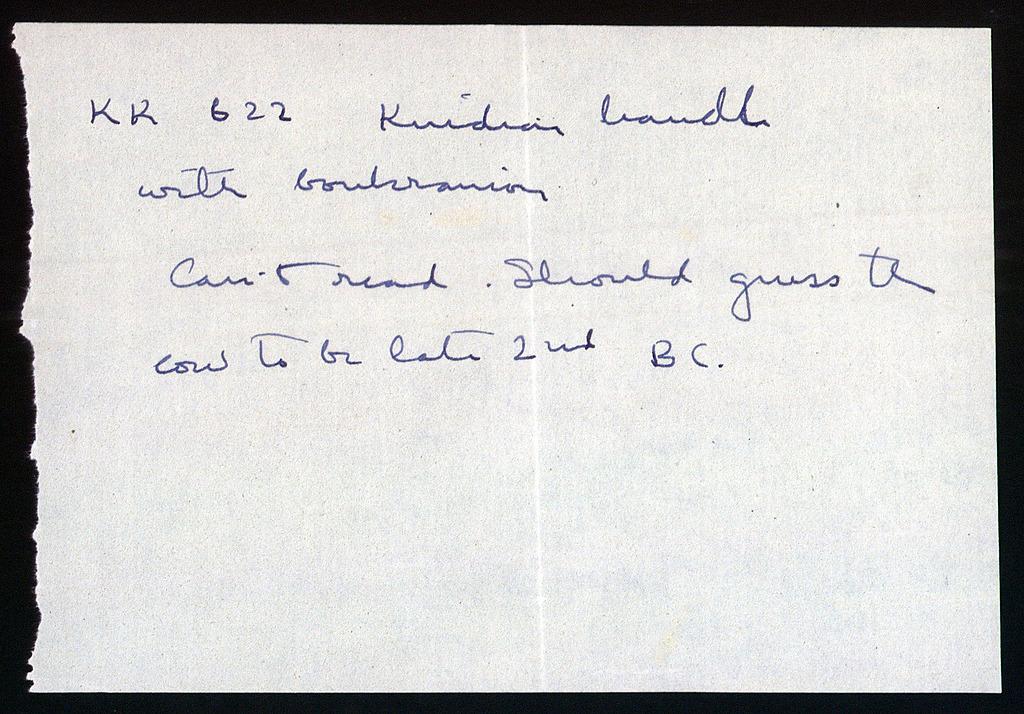 KK 622 Knidian handle
with boukranion
Can't read. Should guess the
cow to be late 2nd BC.